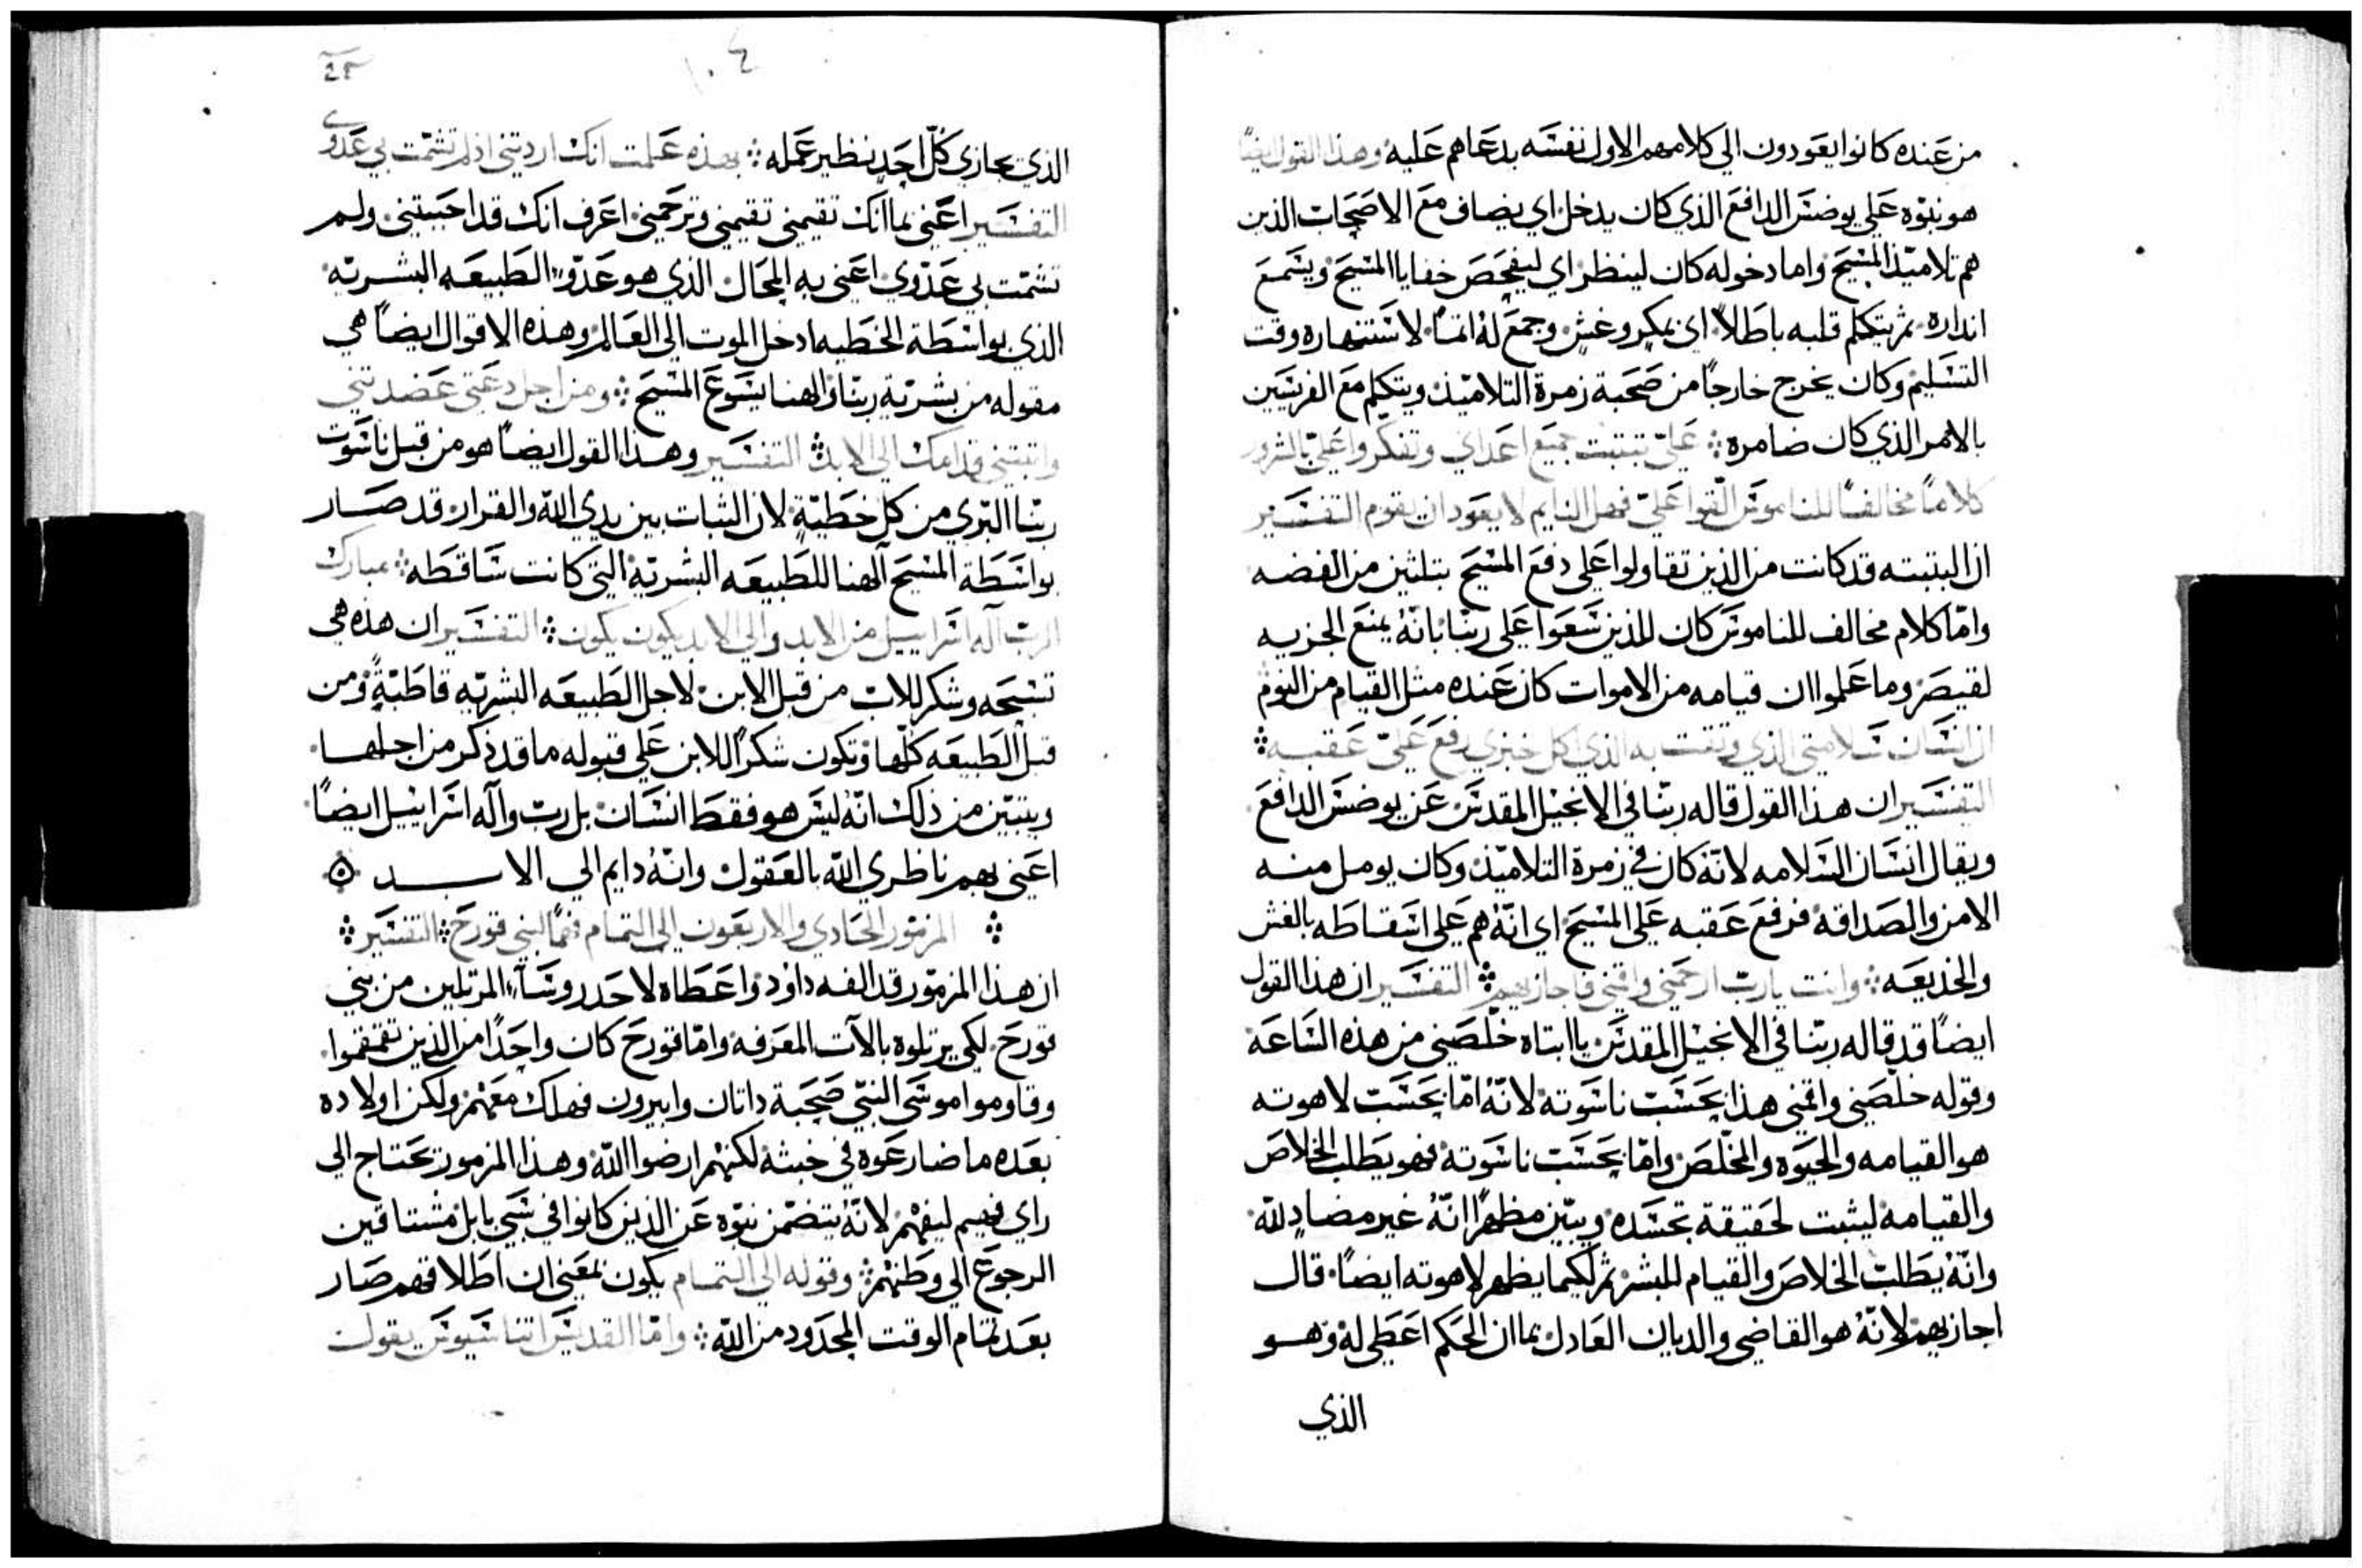 من عنده كانوا يعودون الي كلامهم الاول نفسه بدعاهم عليه وهذا القول ايضًا
هو نبوّه علي يوضس الدافع الذي كان يدخل اي يضاف مع الاصحاب الذين
هم تلاميذ المسيح واما دخوله كان لينظر اي ليفحص خفايا المسيح ويسمع
انداره ثم يتكلم قلبه باطلًا اي بمكر وغش وجمع لهُ اثمًا لاستنهاره وقت
التسليم وكان يخرج خارجًا من صحبة زمرة التلاميذ ويتكلم مع الفريسين
بالامر الذي كان ضامره ⁘ عليّ تبتبت جميع اعداي وتفكروا عليّ بالشرور
كلامًا مخالفًا للناموس القوا عليّ فهل النايم لا يعود ان يقوم التفسير
ان البتبته قد كانت من الذين تقاولوا علي دفع المسيح بتلثين من الفضه
وامّا كلام مخالف للناموس كان للذين سعوا علي ربّنا بانّهُ يمنع الجزيه
لقيصر وما علموا ان قيامه من الاموات كان عنده مثل القيام من النوم
ان انسان سلامتي الذي وثقت به الذي اكل خبزي رفع عليّ عقبه ⁘
التفسير ان هذا القول قاله ربّنا في الانجيل المقدس عن يوضس الدافع
ويقال انسان السلامه لانّهُ كان في زمرة التلاميذ وكان يومل منه
الامن والصداقه فرفع عقبه علي المسيح اي انّهُ هم علي اسقاطه بالغش
والخديعه ⁘ وانت يا ربّ ارحمني واقمني فاجازيهم ⁘ التفسير ان هذا القول
ايضًا قد قاله ربّنا في الانجيل المقدس يا ابتاه خلّصني من هذه الساعه
وقوله خلّصني واقمني هذا بحسب ناسوته لانّهُ امّا بحسب لاهوته
هو القيامه والحيوه والمخلّص وامّا بحسب ناسوته فهو يطلب الخلاص
والقيامه ليثبت لحقيقة تجسده ويبيّن مظهرًا انّهُ غير مضادٍ لله
وانّهُ يطلب الخلاص والقيام للبشر ثم لكيما يظهر لاهوته ايضًا قال
اجازيهم لانّهُ هو القاضي والديان العادل بما ان الحكم اعطي لهُ وهو
الذي
الذي يجازي كلّ احدٍ نظير عمله ⁘ بهذه علمت انك اردتني اذ لم تشمّت بي عدوي
التفسير اعني بما انك تقيمني تقيمني وترحمني اعرف انك قد احببتني ولم
تشمّت بي عدّوي اعني به المحال الذي هو عدّو الطبيعه البشريّه
الذي بواسطة الخطيه ادخل الموت الي العالم وهذه الاقوال ايضًا هي
مقوله من بشريّة ربّنا والهنا يسوع المسيح ⁘ ومن اجل دعتي عضدتني
واثبتني قدامك الي الابد ⁘ التفسير وهذا القول ايضًا هو من قبل ناسوت
ربّنا البّري من كل خطيّة لان الثبات بين يدي الله والقرار قد صار
بواسطة المسيح آلهنا للطبيعه البشريّه التي كانت ساقطه ⁘ مبارك
الربّ آله اسراييل من الابد والي الابد يكون يكون ⁘ التفسير ان هذه هي
تسبحه وشكر للاب من قبل الابن لاجل الطبيعه البشريّه قاطبةً ومن
قبل الطبيعه كلّها وتكون شكرًا للابن علي قبوله ما قد ذكر من اجلها
ويتبيّن من ذلك انّهُ ليس هو فقط انسان بل ربّ وآله اسراييل ايضًا
اعني بهم ناظري الله بالعقول وانّهُ دايم الي الابد
⁘ المزمور الحادي والاربعون الي التمام فهمًا لبني قورح ⁘ التفسير ⁘
ان هذا المزمور قد الفه داود واعطاه لاحد روسآء المرتلين من بني
قورح لكي يرتلوه بالآت المعزفه وامّا قورح كان واحدًا من الذين تقمقموا
وقاوموا موسي النبي صحبة داتان وابيرون فهلك معهم ولكن اولاده
بعده ما ضارعوه في خبثه لكنهم ارضوا الله وهذا المزمور يحتاج الي
راي فهيم ليفهم لانّهُ يتضمّن نبوّه عن الذين كانوا في سبي بابل مشتاقين
الرجوع الي وطنهم ⁘ وقوله الي التمام يكون بمعني ان اطلاقهم صار
بعد تمام الوقت المحدود من الله ⁘ وامّا القديس اتناسيوس يقول